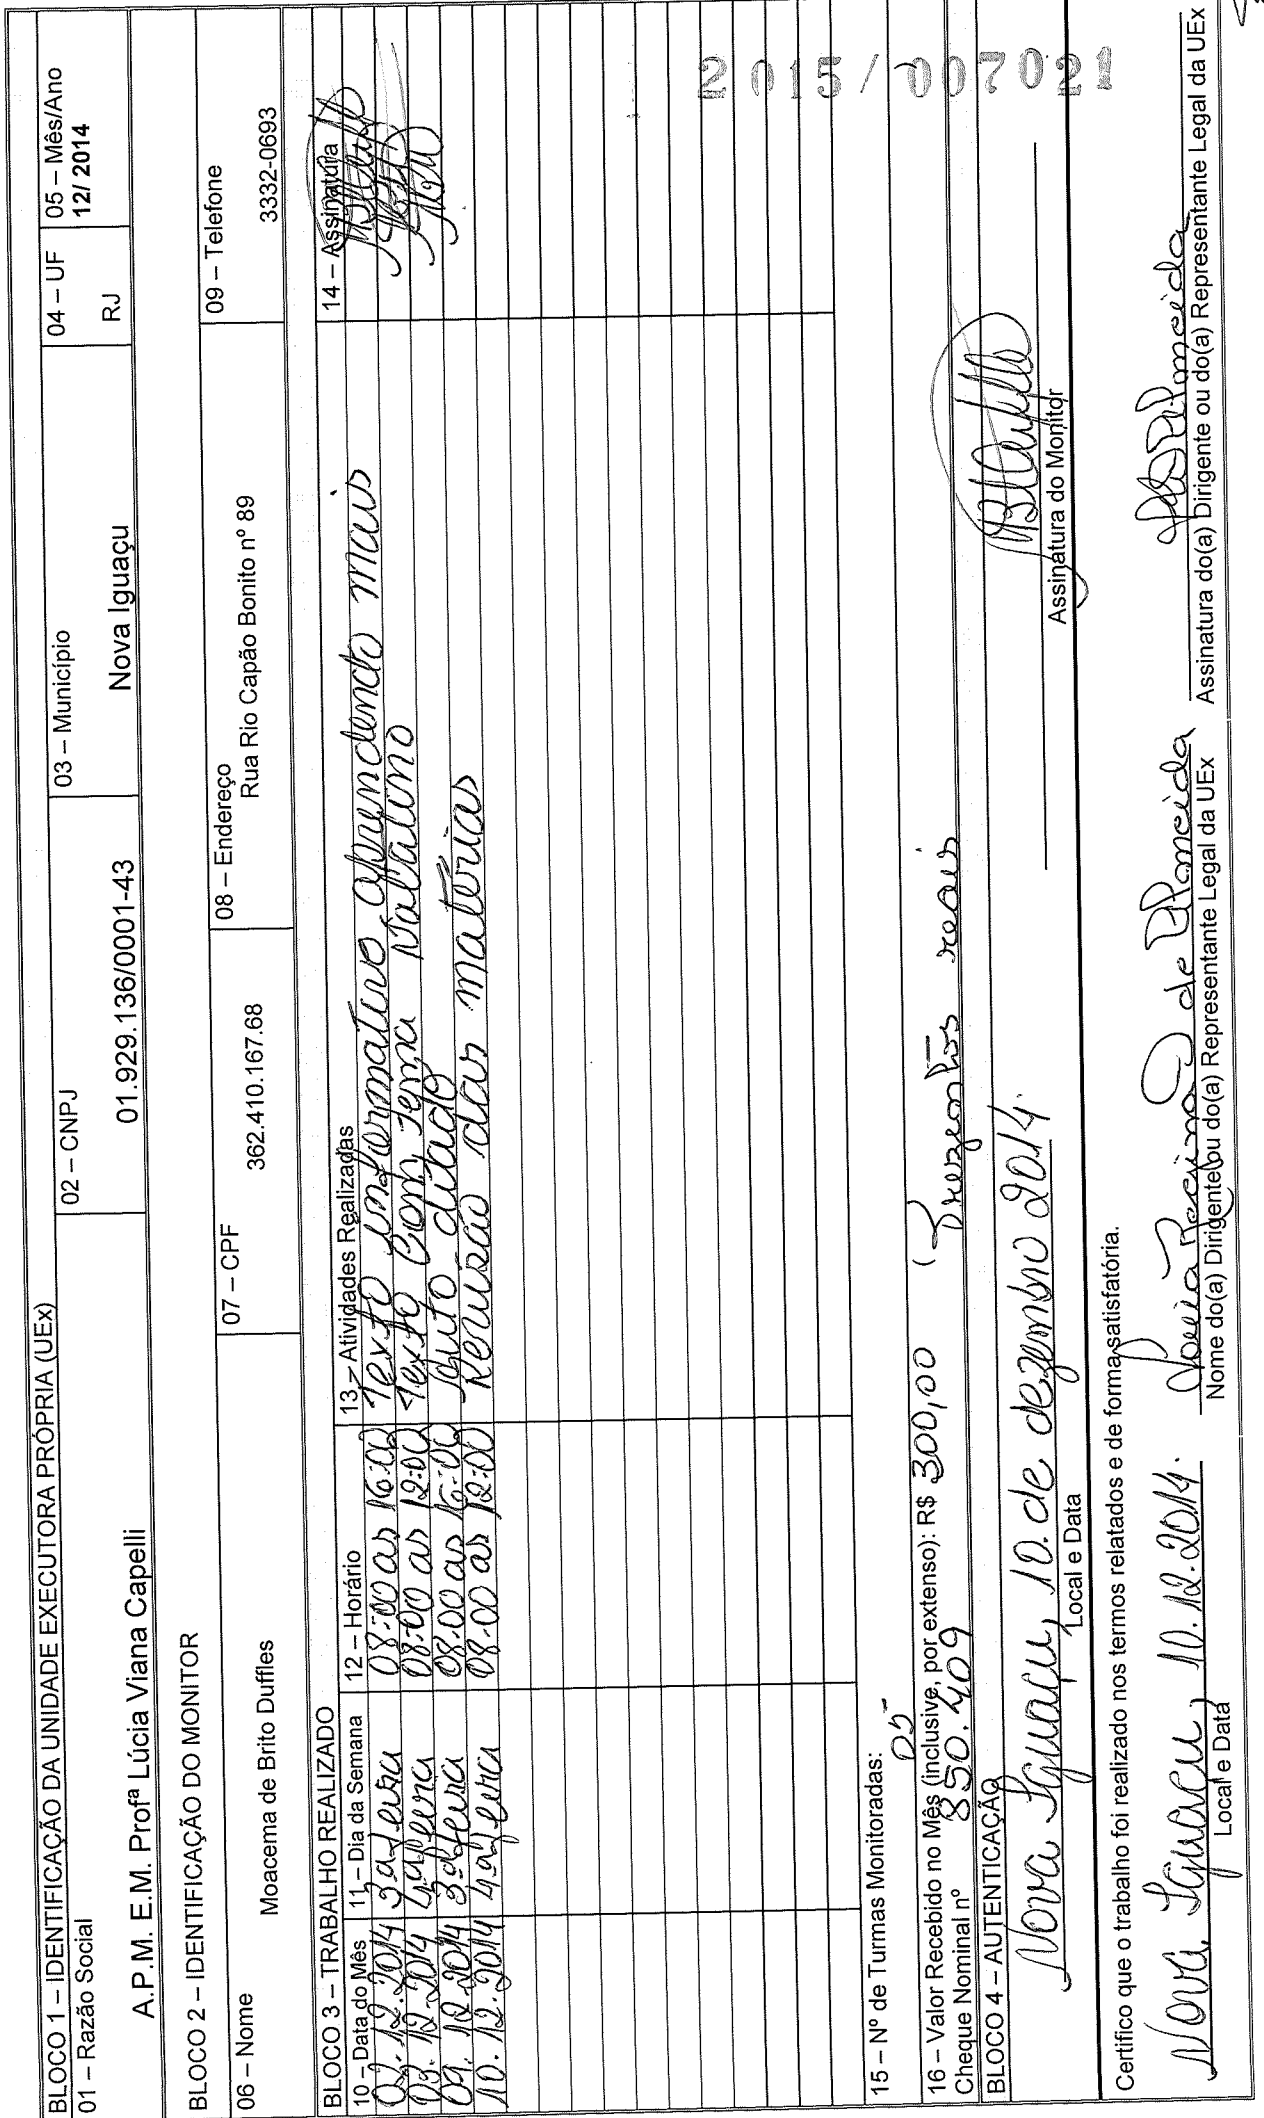 BLOCO 1 – IDENTIFICAÇÃO DA UNIDADE EXECUTORA PRÓPRIA (UEx)
01 – Razão Social
A.P.M. E.M. Profª Lúcia Viana Capelli
02 – CNPJ
01.929.136/0001-43
03 – Município
Nova Iguaçu
04 – UF
RJ
05 – Mês/Ano
12/ 2014
BLOCO 2 – IDENTIFICAÇÃO DO MONITOR
06 – Nome
Moacema de Brito Duffles
07 – CPF
362.410.167.68
08 – Endereço
Rua Rio Capão Bonito nº 89
09 – Telefone
3332-0693
BLOCO 3 – TRABALHO REALIZADO
10 – Data do Mês 11 – Dia da Semana 12 – Horário 13 – Atividades Realizadas 14 – Assinatura
02.12.2014 3ª feira 08:00 as 16:00 Texto informativo aprendendo mais
03.12.2014 4ª feira 08:00 as 12:00 Texto com tema natalino
09.12.2014 3ª feira 08:00 as 16:00 auto ditado
10.12.2014 4ª feira 08:00 as 12:00 Revisão das matérias
15 – Nº de Turmas Monitoradas:
05
16 – Valor Recebido no Mês (inclusive, por extenso): R$ 300,00 ( Trezentos reais
Cheque Nominal nº 850.409
2015/007021
BLOCO 4 – AUTENTICAÇÃO
Nova Iguaçu, 10. de dezembro 2014.
Local e Data
Assinatura do Monitor
Certifico que o trabalho foi realizado nos termos relatados e de forma satisfatória.
Nova Iguaçu, 10.12.2014.
Local e Data
Regina de Almeida
Nome do(a) Dirigente ou do(a) Representante Legal da UEx
Assinatura do(a) Dirigente ou do(a) Representante Legal da UEx